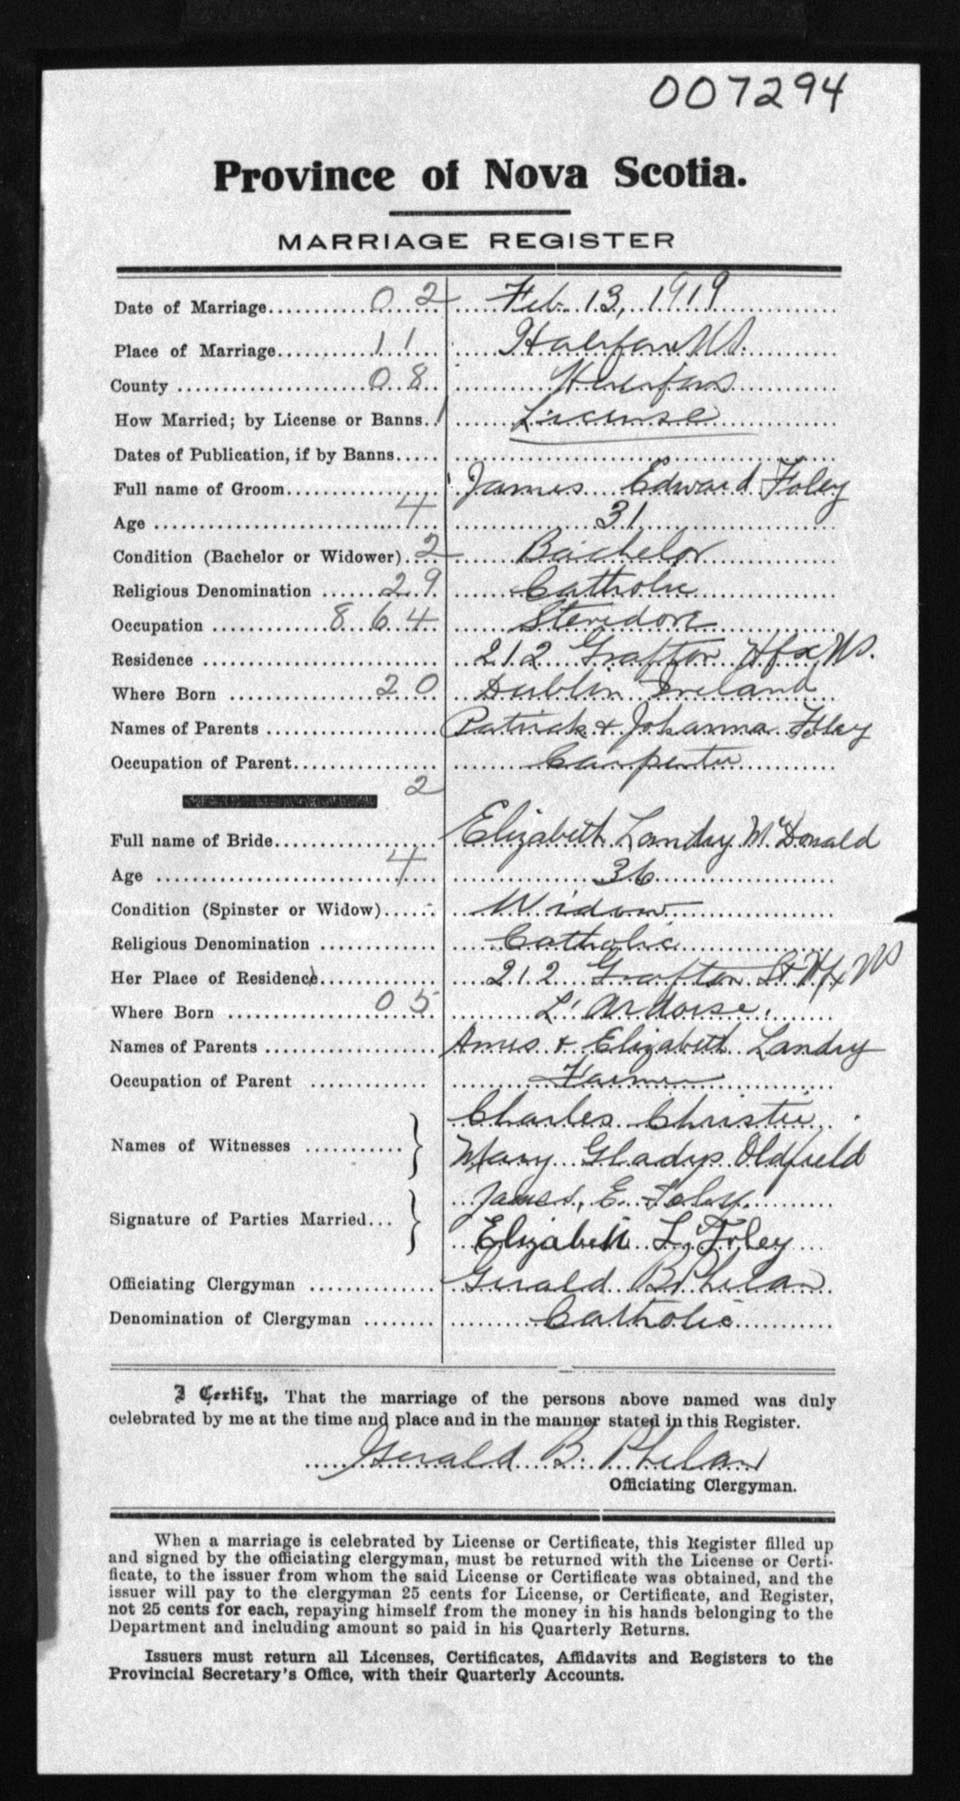 007294
Province of Nova Scotia.
MARRIAGE REGISTER
Date of Marriage 02 Feb. 13, 1919
Place of Marriage 11 Halifax NS.
County 08 Halifax
How Married; by License or Banns. 1 License
Dates of Publication, if by Banns
Full name of Groom James Edward Foley
Age 4 31
Condition (Bachelor or Widower) 2 Bachelor
Religious Denomination 29 Catholic
Occupation 864 Stevidore
Residence 212 Grafton Hfx NS.
Where Born 20 Dublin Ireland
Names of Parents Patrick & Johanna Foley
Occupation of Parent Carpenter
2
Full name of Bride Elizabeth Landry McDonald
Age 4 36
Condition (Spinster or Widow) Widow
Religious Denomination Catholic
Her Place of Residence 212 Grafton St Hfx NS
Where Born 05 L'Ardoise.
Names of Parents Amos & Elizabeth Landry
Occupation of Parent Farmer
Charles Christie
Names of Witnesses }
Mary Gladys Oldfield
James E. Foley
Signature of Parties Married... }
Elizabeth L. Foley
Officiating Clergyman Gerald B Phelan
Denomination of Clergyman Catholic
I Certify, That the marriage of the persons above named was duly
celebrated by me at the time and place and in the manner stated in this Register.
Gerald B. Phelan
Officiating Clergyman.
When a marriage is celebrated by License or Certificate, this Register filled up
and signed by the officiating clergyman, must be returned with the License or Certi-
ficate, to the issuer from whom the said License or Certificate was obtained, and the
issuer will pay to the clergyman 25 cents for License, or Certificate, and Register,
not 25 cents for each, repaying himself from the money in his hands belonging to the
Department and including amount so paid in his Quarterly Returns.
Issuers must return all Licenses, Certificates, Affidavits and Registers to the
Provincial Secretary's Office, with their Quarterly Accounts.